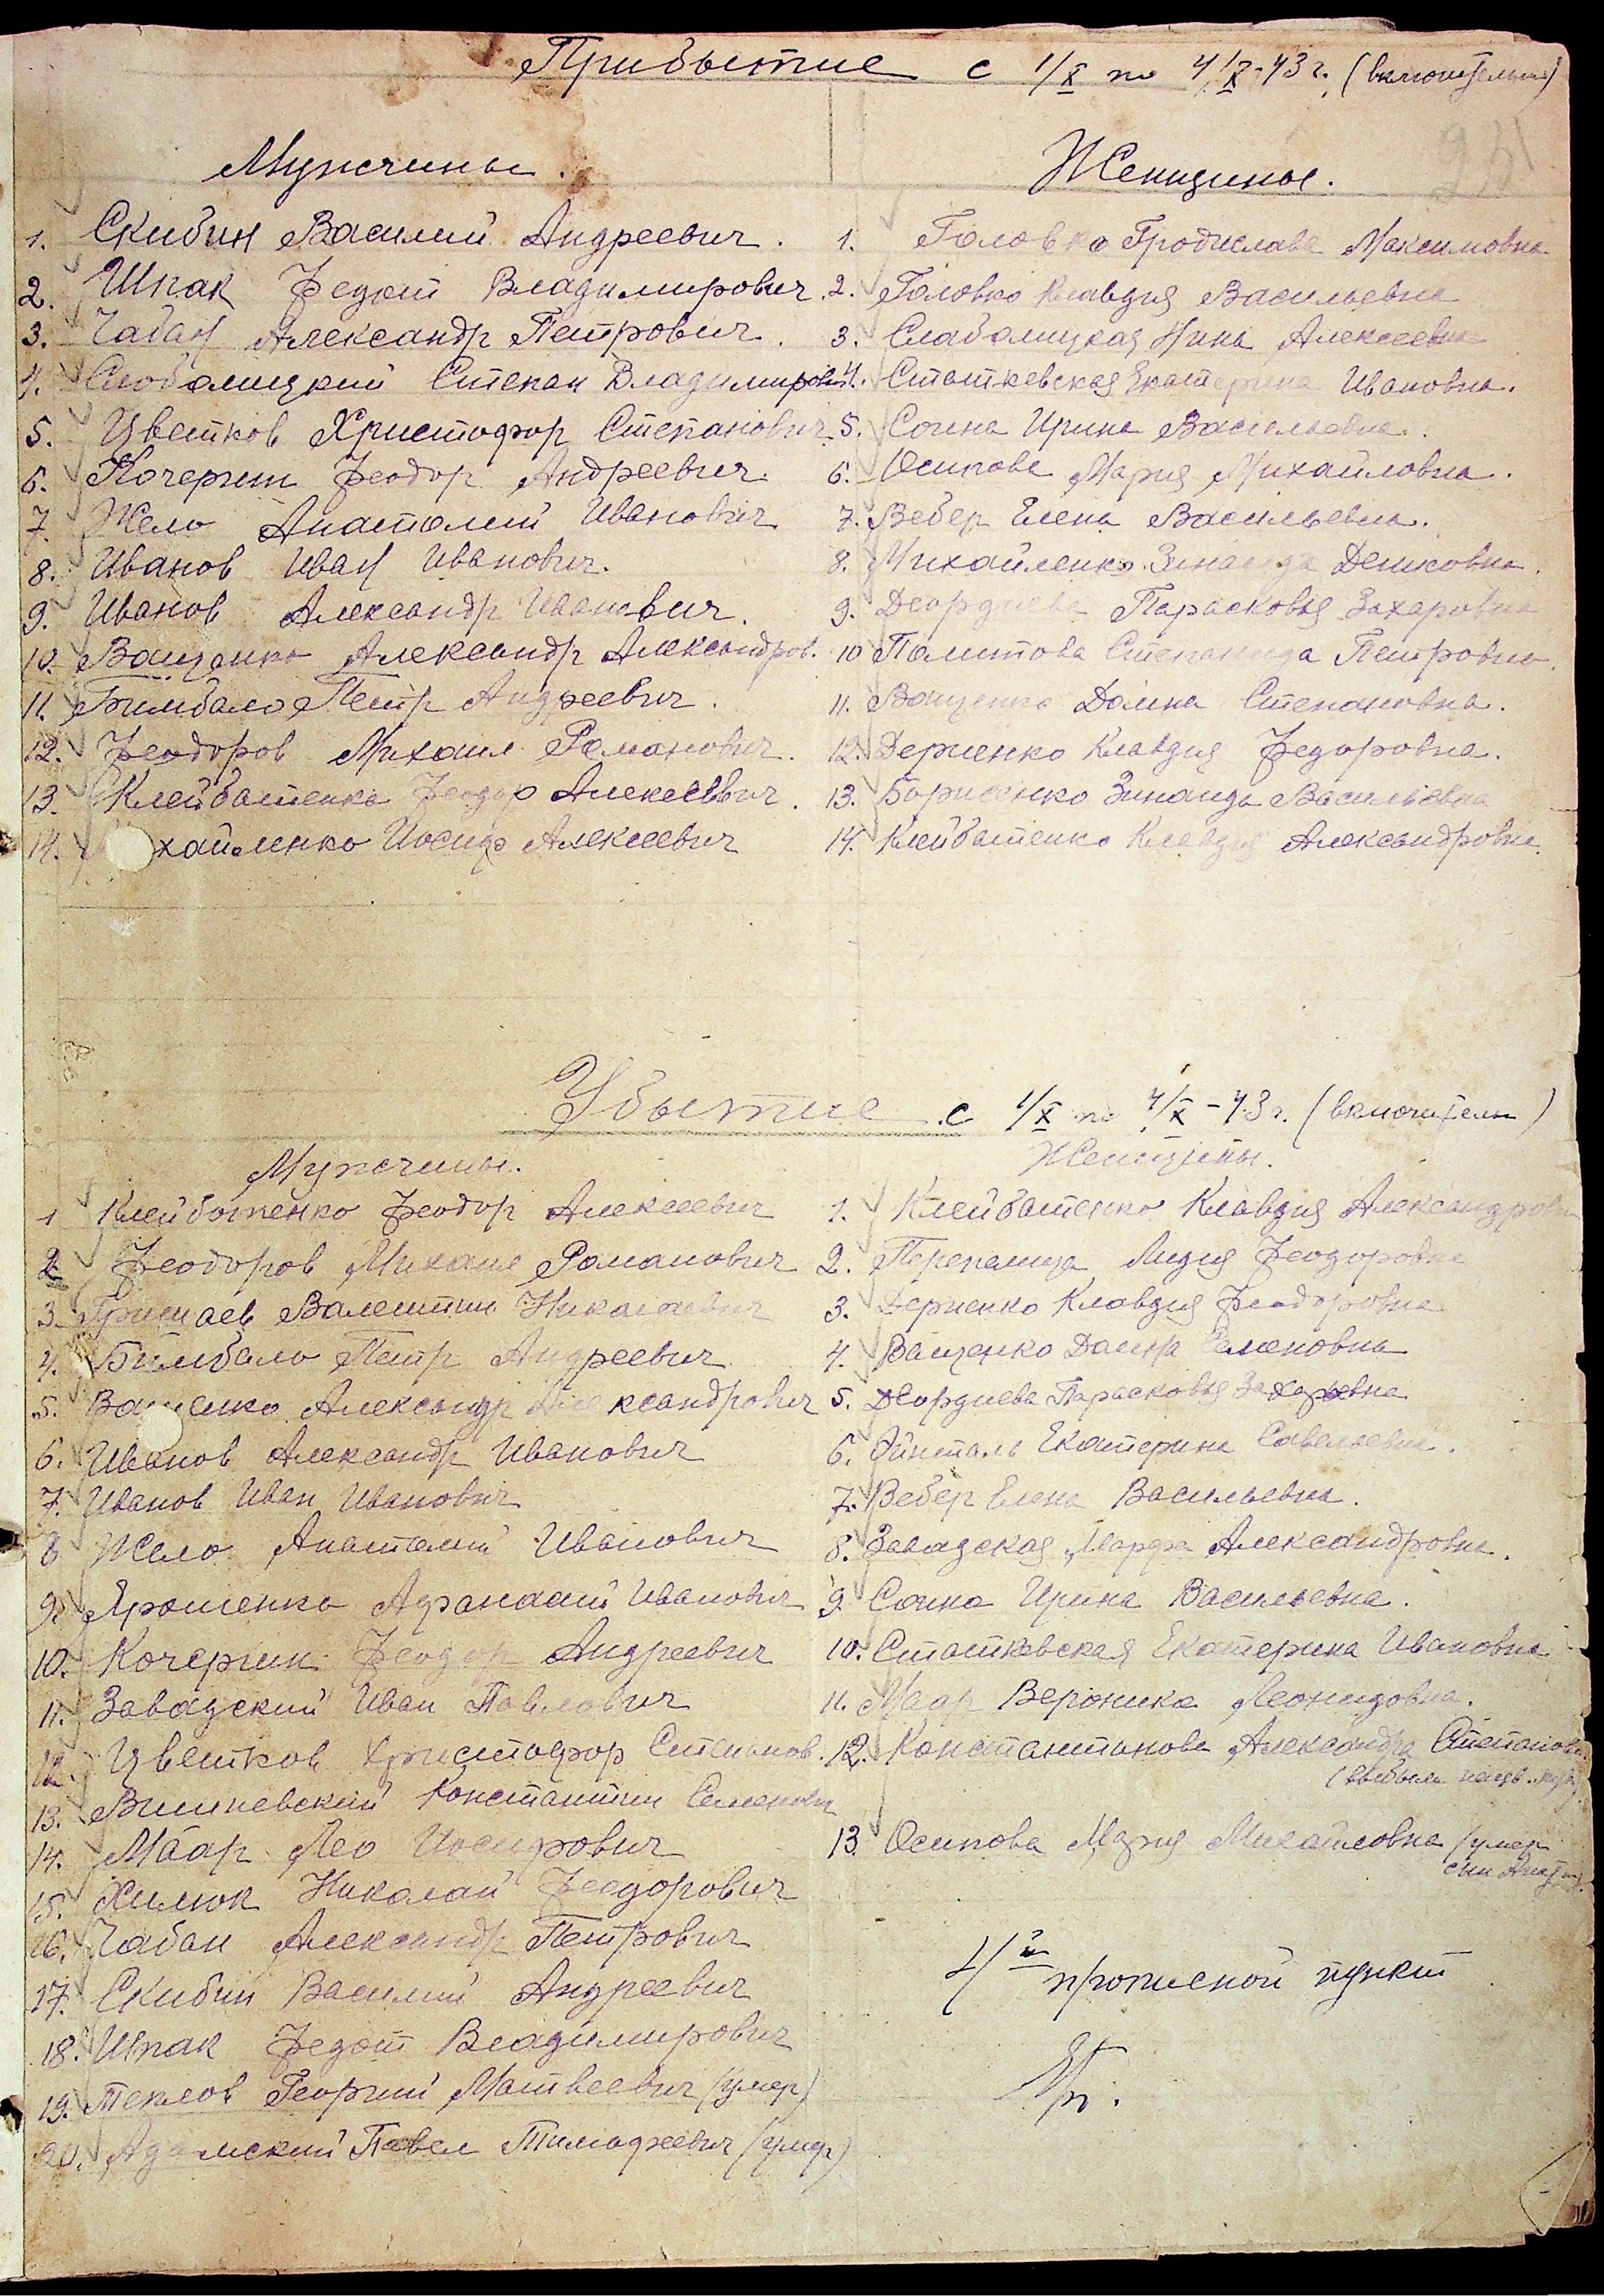 Прибытие с 1/X по 4/X-43 г. (включительно)
251
Мужчины.
1. Скибин Василий Андреевич.
2. Шпак Федот Владимирович.
3. Чабан Александр Петрович.
4. Слободницкий Степан Владимирович
5. Цветков Христофор Степанович
6. Кочергин Феодор Андреевич.
7. Жело Анатолий Иванович
8. Иванов Иван Иванович.
9. Иванов Александр Иванович.
10. Ващенко Александр Александров.
11. Бимбало Петр Андреевич.
12. Феодоров Михаил Романович.
13. Клейботенко Феодор Алексеевич.
14. хайленко Иосиф Алексеевич
Женщины.
1. Головко Максимовна
2. Головко Клавдия Васильевна
3. Нина Алексеевна
4. Сташкевская Екатерина Ивановна.
5. Сочка Ирина Васильевна.
6. Осипова Мария Михайловна.
7. Вебер Елена Васильевна.
8. Михайленко Зинаида
9. Деордиева Парасковья Захаровна
10 Степанида Петровна.
11. Ващенко Домна Степановна.
12. Дериенко Клавдия Федоровна.
13. Борисенко Зинаида Васильевна
14. Клейботенко Клавдия Александровна.
Убытие с 1/X по 4/X-43 г. (включительн)
Мужчины.
1 Клейботенко Феодор Алексеевич
2 Феодоров Михаил Романович
3. Валентин Николаевич
4. Бимбало Петр Андреевич.
5. Ващенко Александр Александрович
6. Иванов Александр Иванович
7. Иванов Иван Иванович
8 Жело Анатолий Иванович
9. Ярошенко Афанасий Иванович
10. Кочергин Феодор Андреевич
11. Завадский Иван Павлович
12. Цветков Христофор Степанов.
13. Вишневский Константин Семенович
14. Маар Лео Иосифович
15. Хилюк Николай Феодорович
16. Чабан Александр Петрович
17. Скибин Василий Андреевич
18. Шпак Федот Владимирович
19. Теплов Георгий Матвеевич (умер)
20. Адамский Павел Тимофеевич (умер)
Женщины.
1. Клейботенко Клавдия Александровн
2. Перепелица Лидия Феодоровна
3. Дериенко Клавдия Феодоровна
4. Ващенко Домна
5. Деордиева Парасковья Захаровна
6. Екатерина Савельевна.
7. Вебер Елена Васильевна.
8. Завадская Марфа Александровна.
9 Сочка Ирина Васильевна.
10. Сташкевская Екатерина Ивановна
11. Маар Вероника Леонидовна.
12. Константинова Александра Степановн.
(выбыла
13. Осипова Мария Михайловна (умер
сын
4й прописной пункт